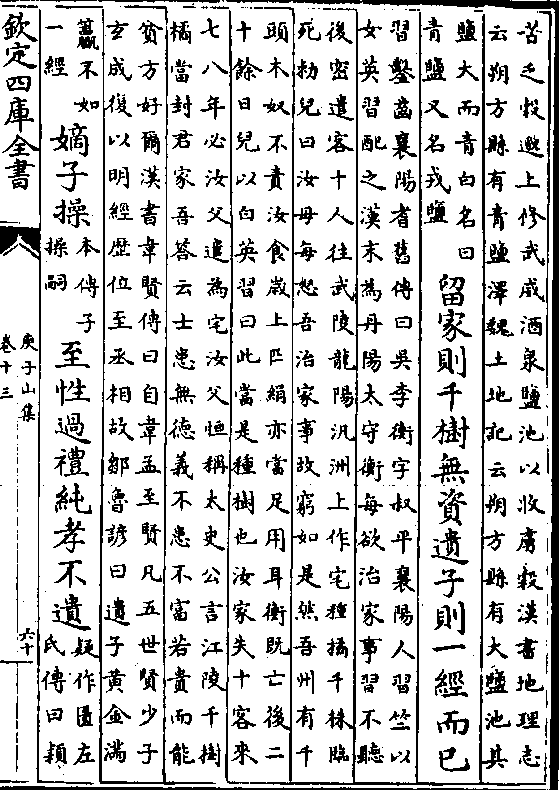 苦乏穀遬上修武威酒泉鹽池以收虜穀漢書地理志
云朔方縣有青鹽澤魏土地記云朔方縣有大鹽池其
鹽大而青白名曰
青鹽又名戎鹽
留家則千樹無資遺子則一經而已
習鑿齒襄陽耆舊傳曰吳李衡字叔平襄陽人習竺以
女英習配之漢末為丹陽太守衡每欲治家事習不聽
後密遣客十人往武陵龍陽汎洲上作宅種橘千株臨
死勅兒曰汝母每怒吾治家事故窮如是然吾州有千
頭木奴不責汝食歲上匹絹亦當足用耳衡既亡後二
十餘日兒以白英習曰此當是種樹也汝家失十客來
七八年必汝父遣為宅汝父恒稱太史公言江陵千樹
橘當封君家吾答云士患無德義不患不富若貴而能
貧方好爾漢書韋賢傳曰自韋孟至賢凡五世賢少子
玄成復以明經歷位至丞相故鄒魯諺曰遺子黃金滿
籯不如
一經
嫡子操
本傳子
操嗣
至性過禮純孝不遺
疑作匱左
氏傳曰穎
欽定四庫全書
庾子山集
卷十三
六十